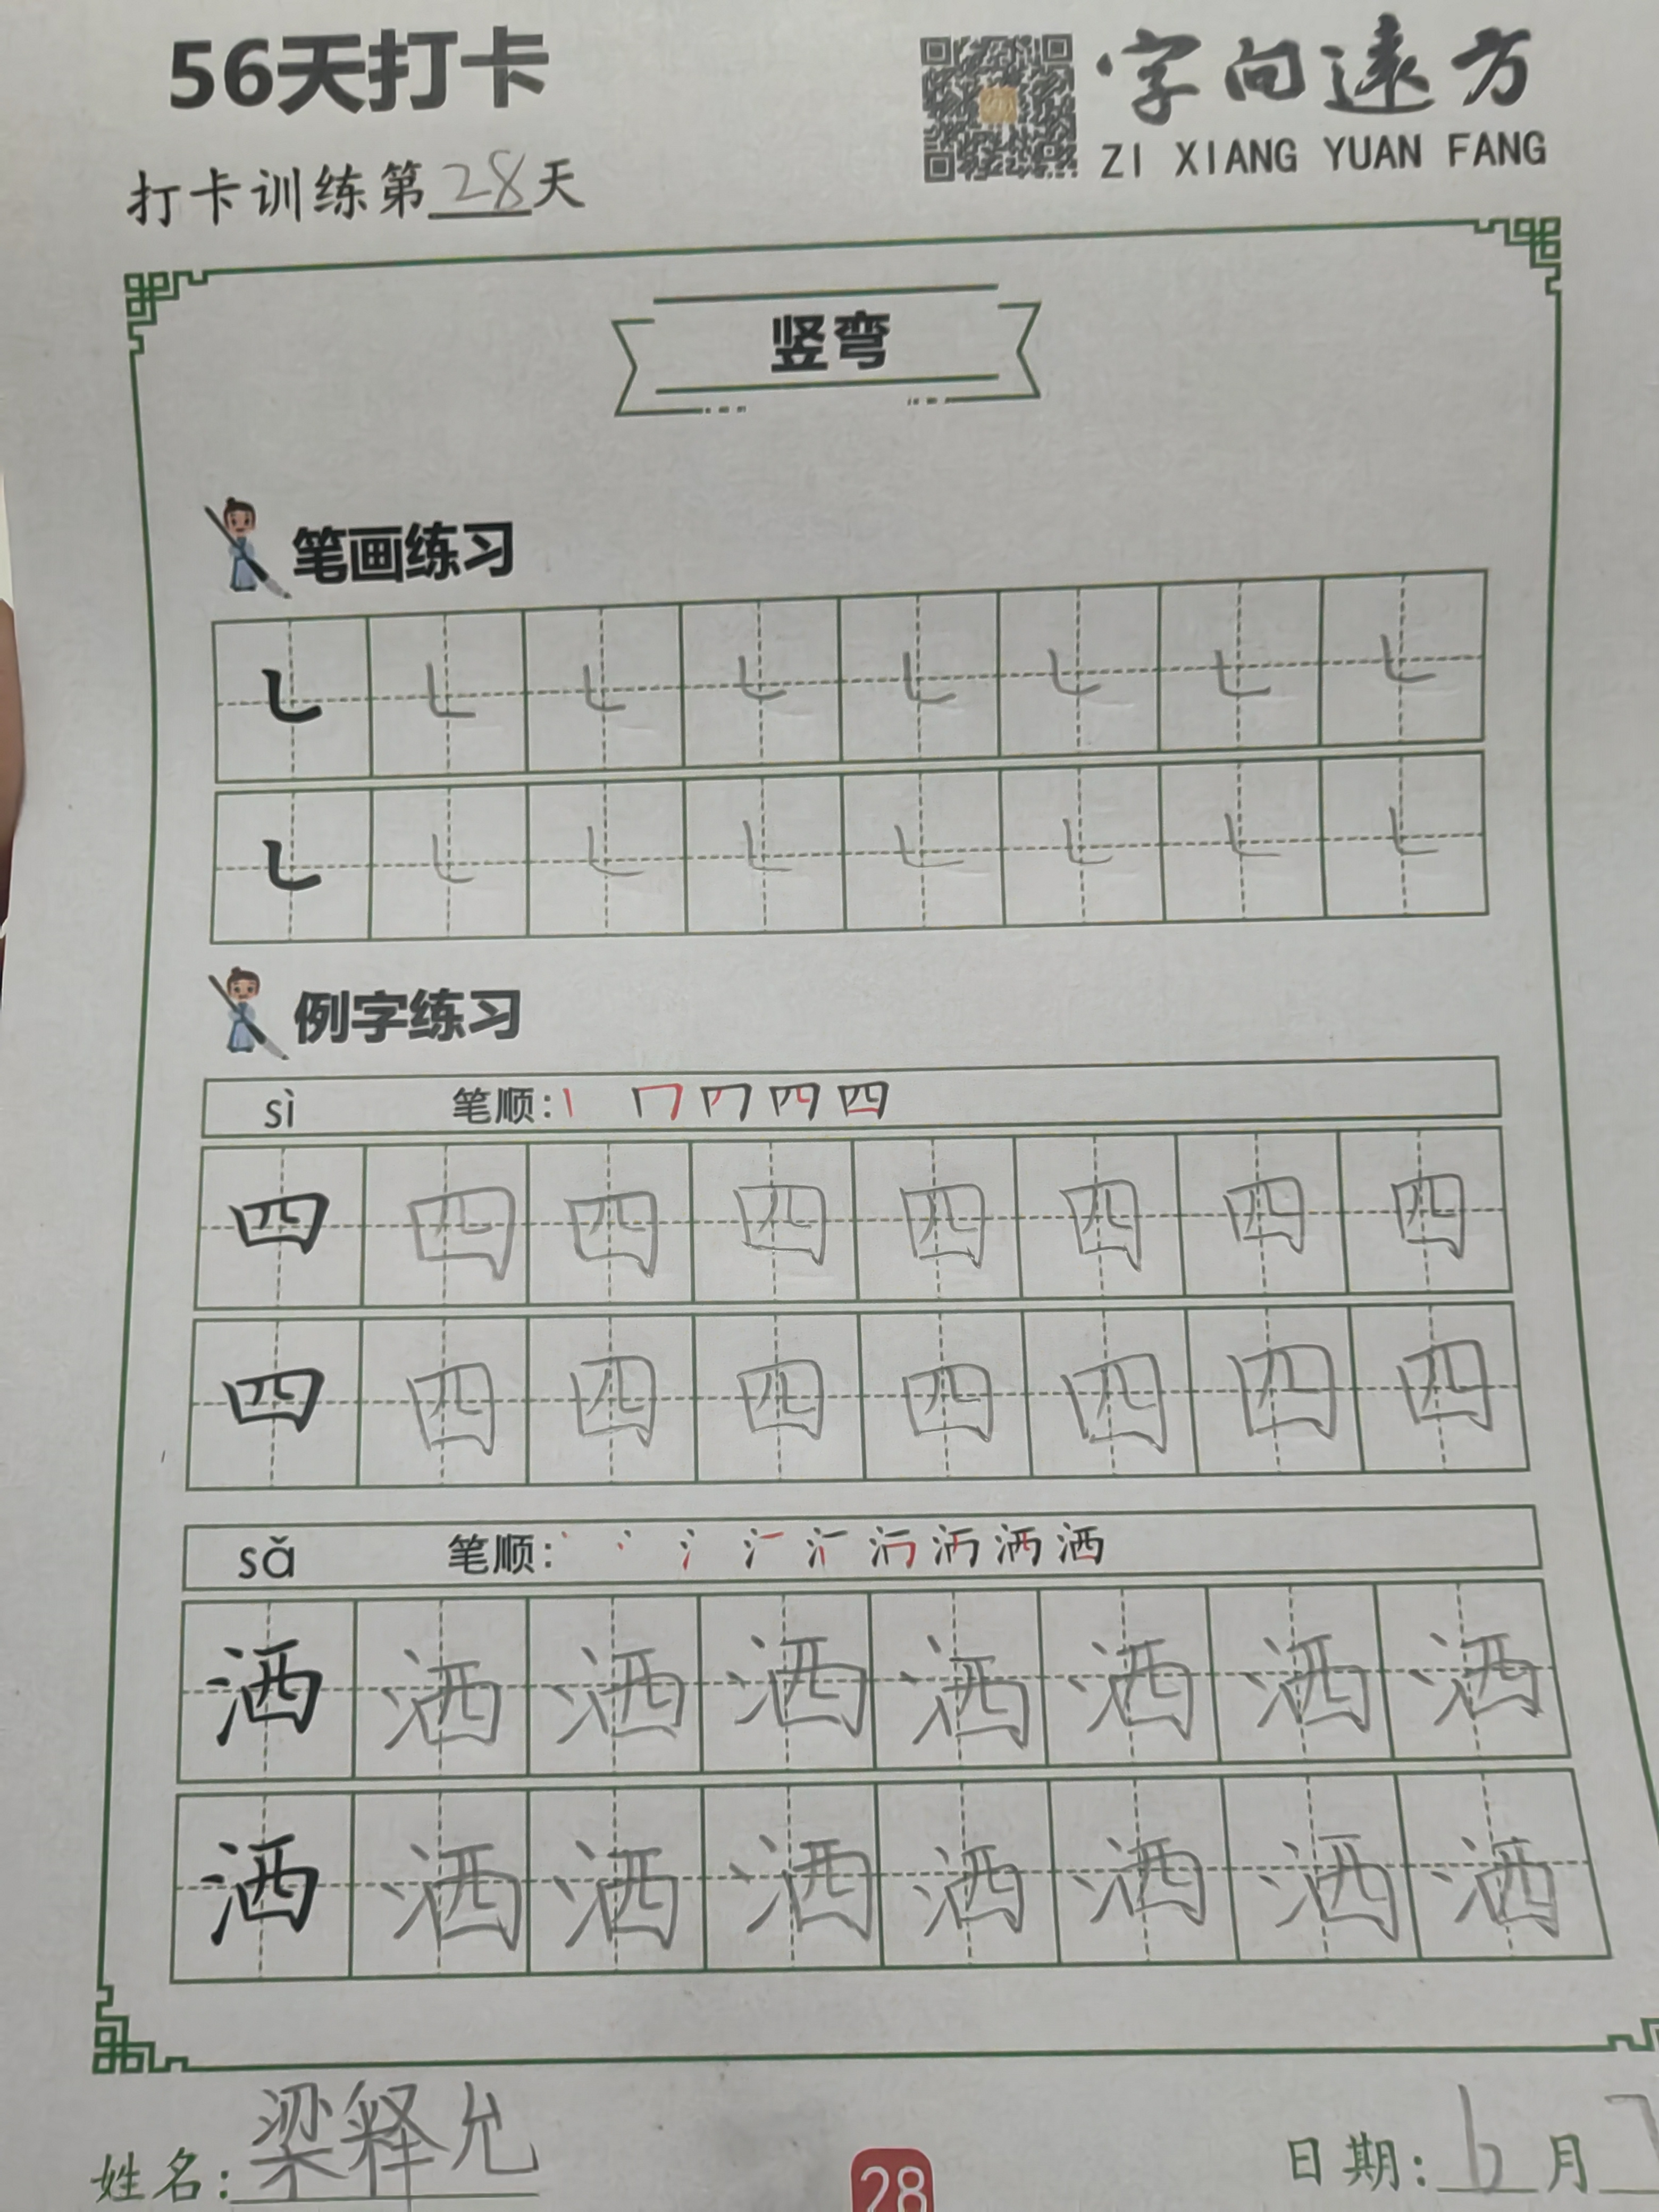 56天打卡
字向远方
ZI XIANG YUAN FANG
打卡训练第28天
竖弯
笔画练习
㇄ ㇄ ㇄ ㇄ ㇄ ㇄ ㇄ ㇄
㇄ ㇄ ㇄ ㇄ ㇄ ㇄ ㇄ ㇄
例字练习
sì 笔顺: 四
四 四 四 四 四 四 四 四
四 四 四 四 四 四 四 四
sǎ 笔顺: 洒
洒 洒 洒 洒 洒 洒 洒 洒
洒 洒 洒 洒 洒 洒 洒 洒
姓名: 梁释允
28
日期: 6月